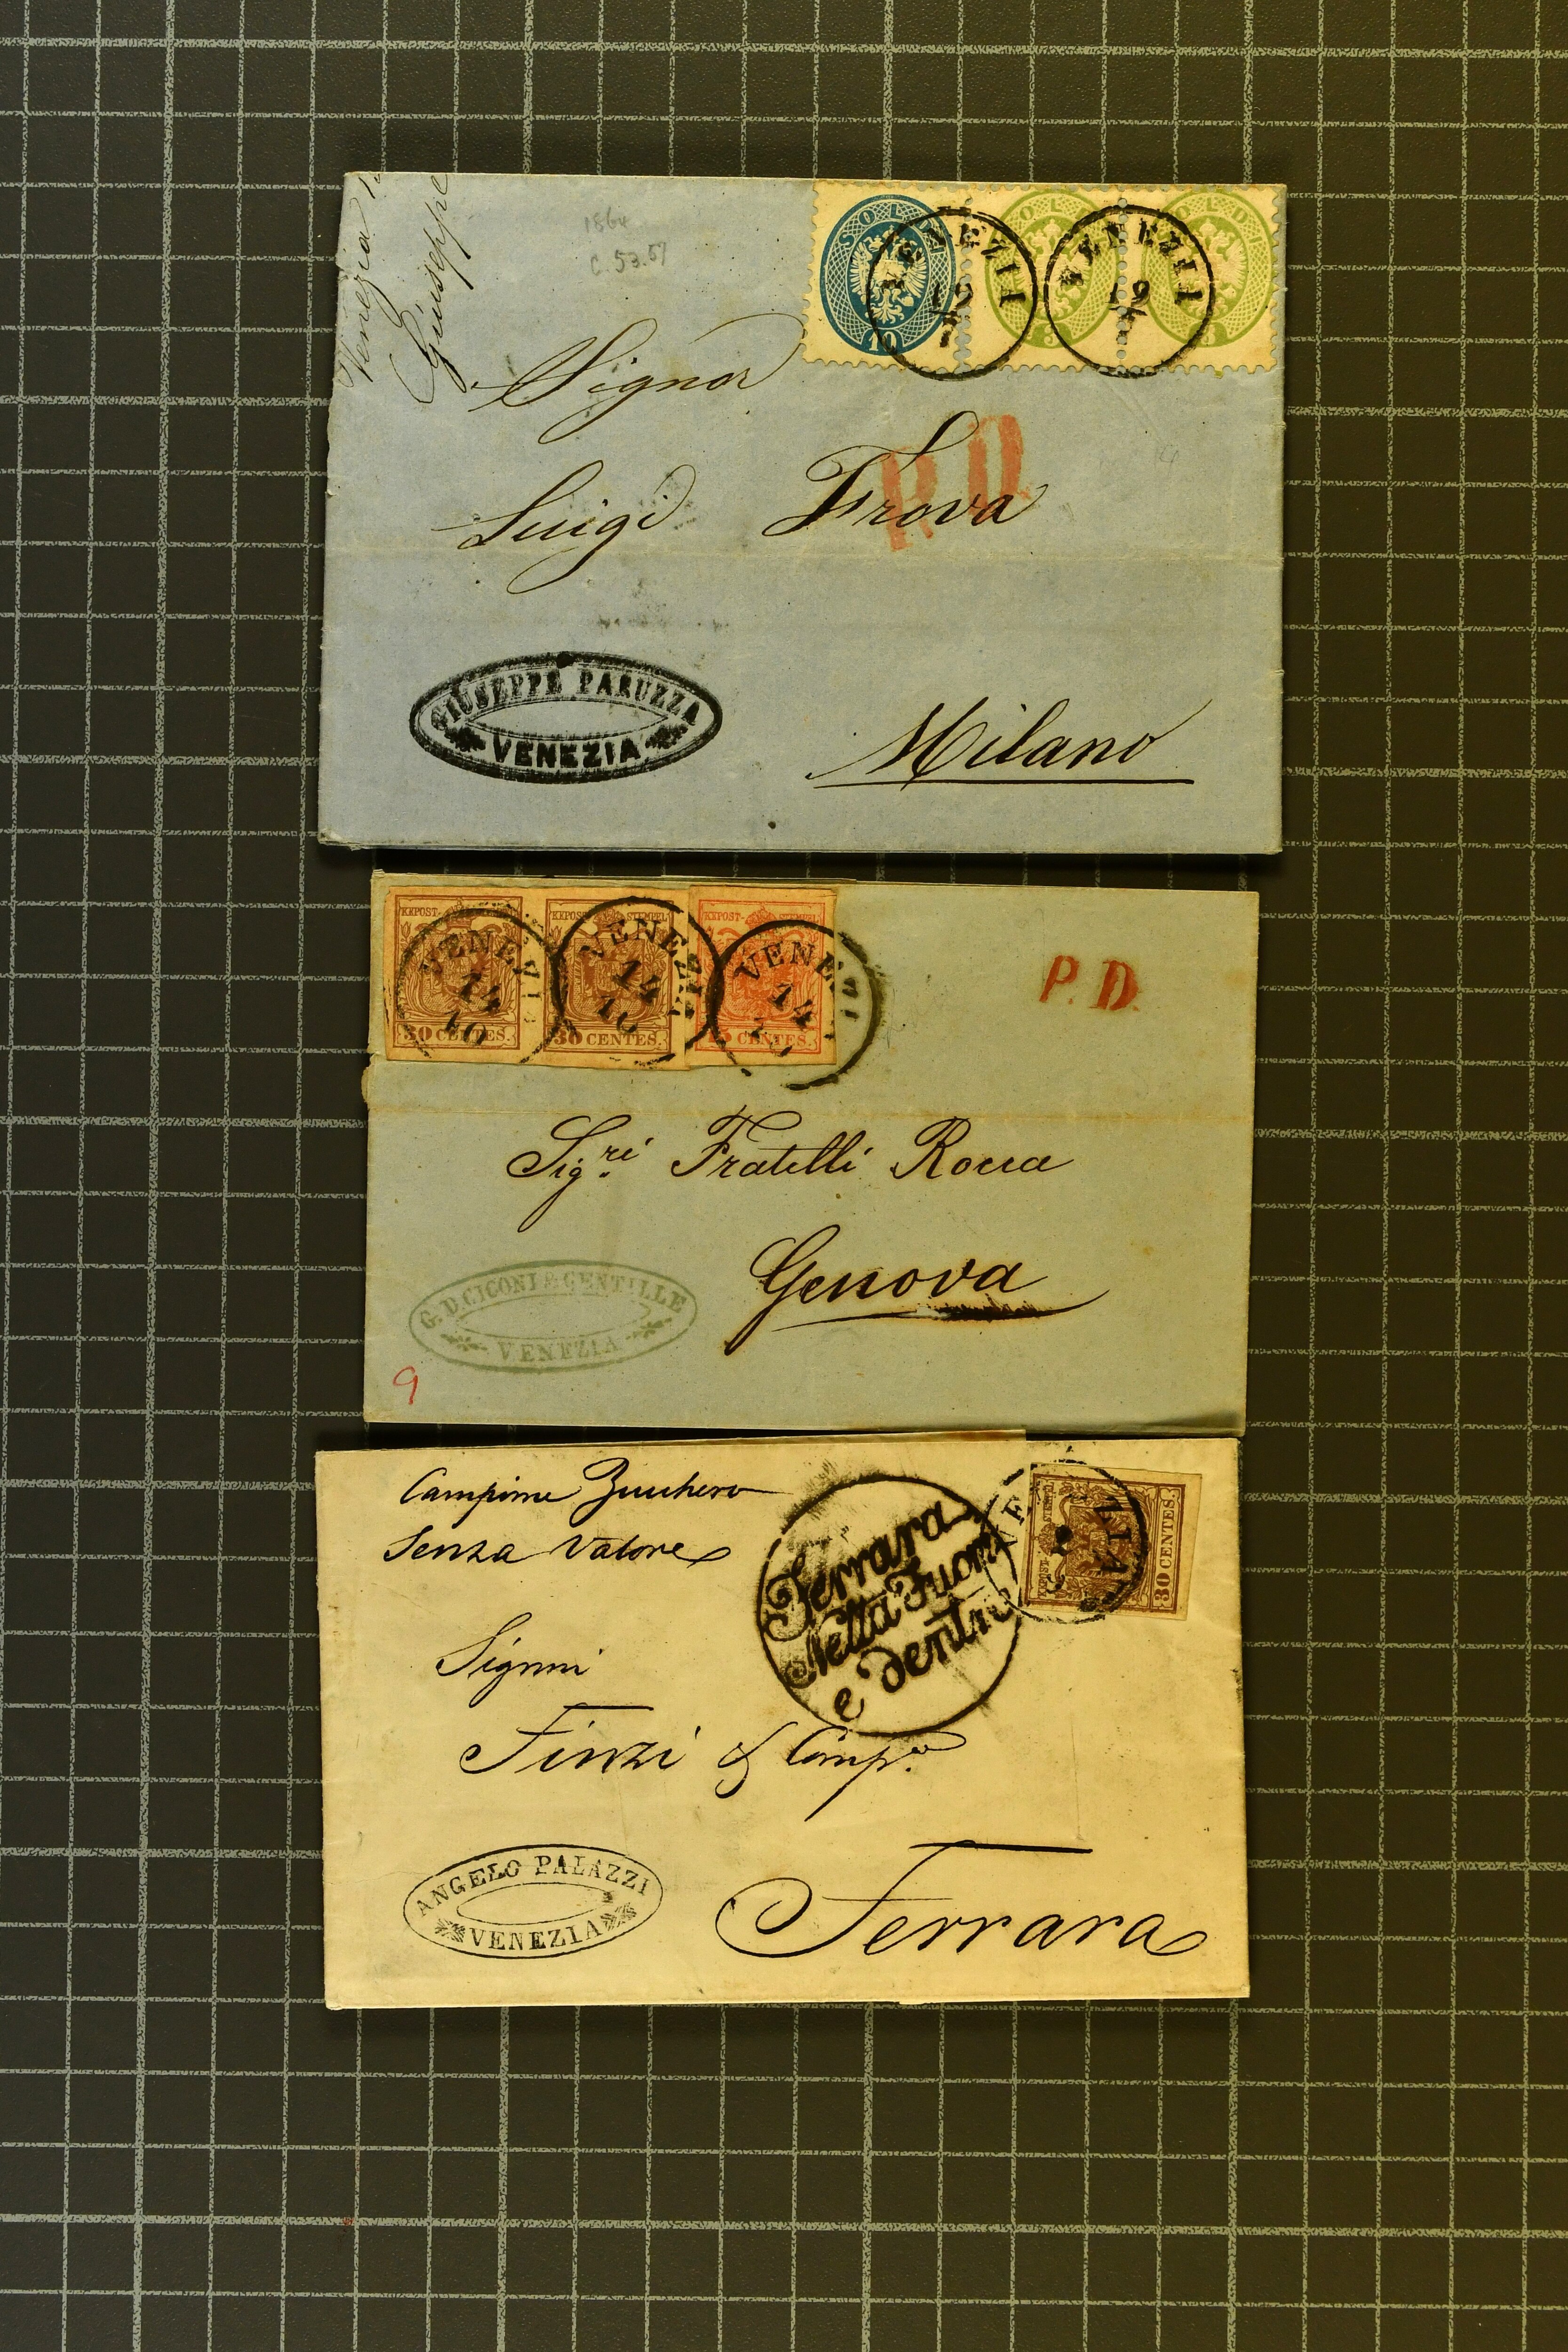 Venezia
Giuseppe
1864
C. 53.51
SOLDI
10
SOLDI
3
SOLDI
3
VENEZIA
19
VENEZIA
19
Signor
Luigi Trova
P.D
GIUSEPPE PARUZZA
VENEZIA
Milano
KKPOST-
30 CENTES.
KKPOST- STEMPEL
30 CENTES.
KKPOST- STEMPEL
15 CENTES.
VENEZIA
14
10
VENEZIA
14
10
VENEZI
14
P. D.
Sig.ri Fratelli Rocca
Genova
G. D. CICONI E GENTILLE
VENEZIA
9
Campione Zucchero
Senza Valore
Ferrara
Netta Fuori
e dentro
KKPOST- STEMPEL
30 CENTES.
VENEZIA
Signori
Finzi & Comp.a
ANGELO PALAZZI
VENEZIA
Ferrara